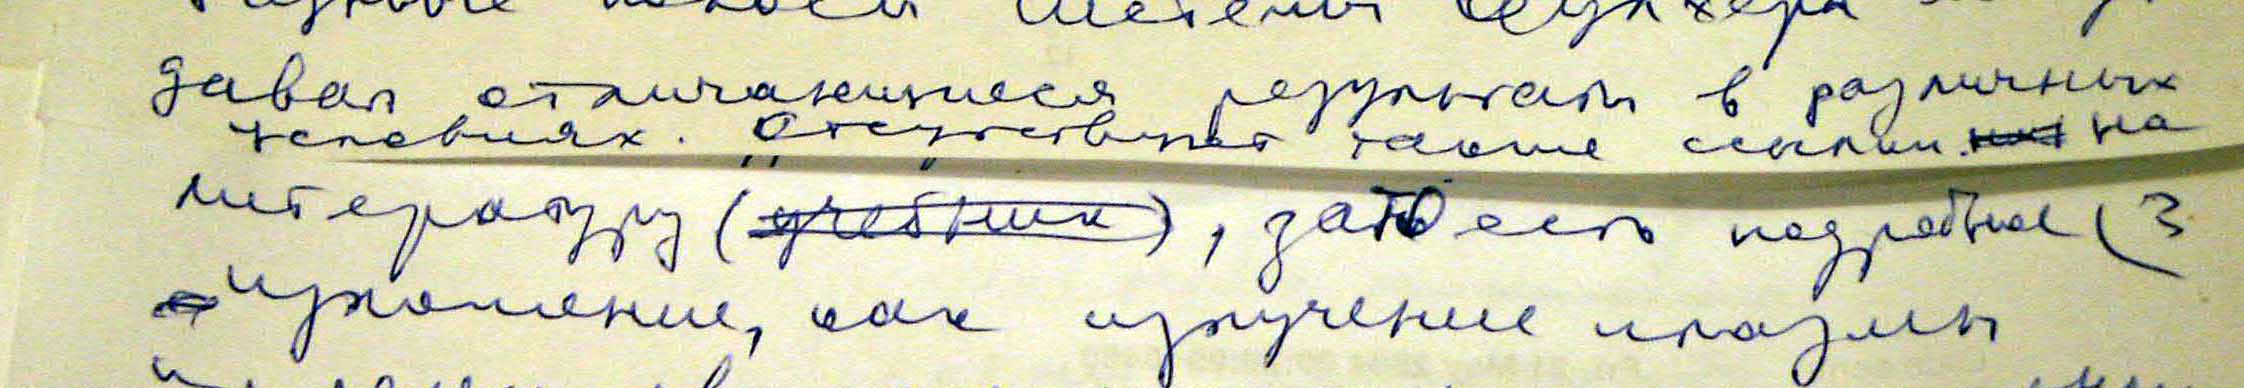 давал отличающиеся результаты в различных
условиях. Отсутствует также ссылки на
литературу (учебник), зато есть подробное (3
изложение, как излучение плазмы